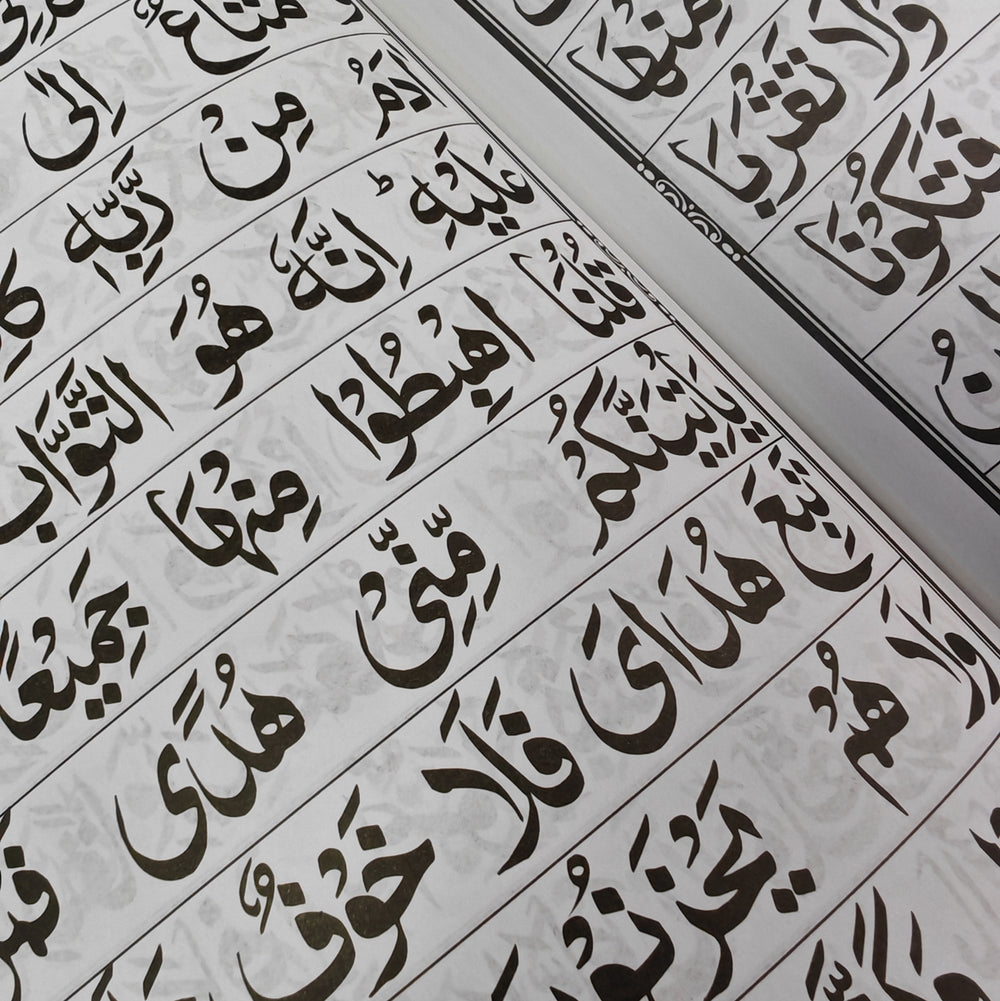 مِنْهَا
وَلَا تَقْرَبَا
فَتَكُوْنَا
مَتَاعٌ اِلٰى
مِنْ رَّبِّهٖ
عَلَيْهِ ؕ اِنَّهٗ هُوَ التَّوَّابُ
قُلْنَا اهْبِطُوْا مِنْهَا جَمِيْعًا
يَاْتِيَنَّكُمْ مِّنِّىْ هُدًى
تَبِعَ هُدَاىَ فَلَا خَوْفٌ
هُمْ يَحْزَنُوْنَ